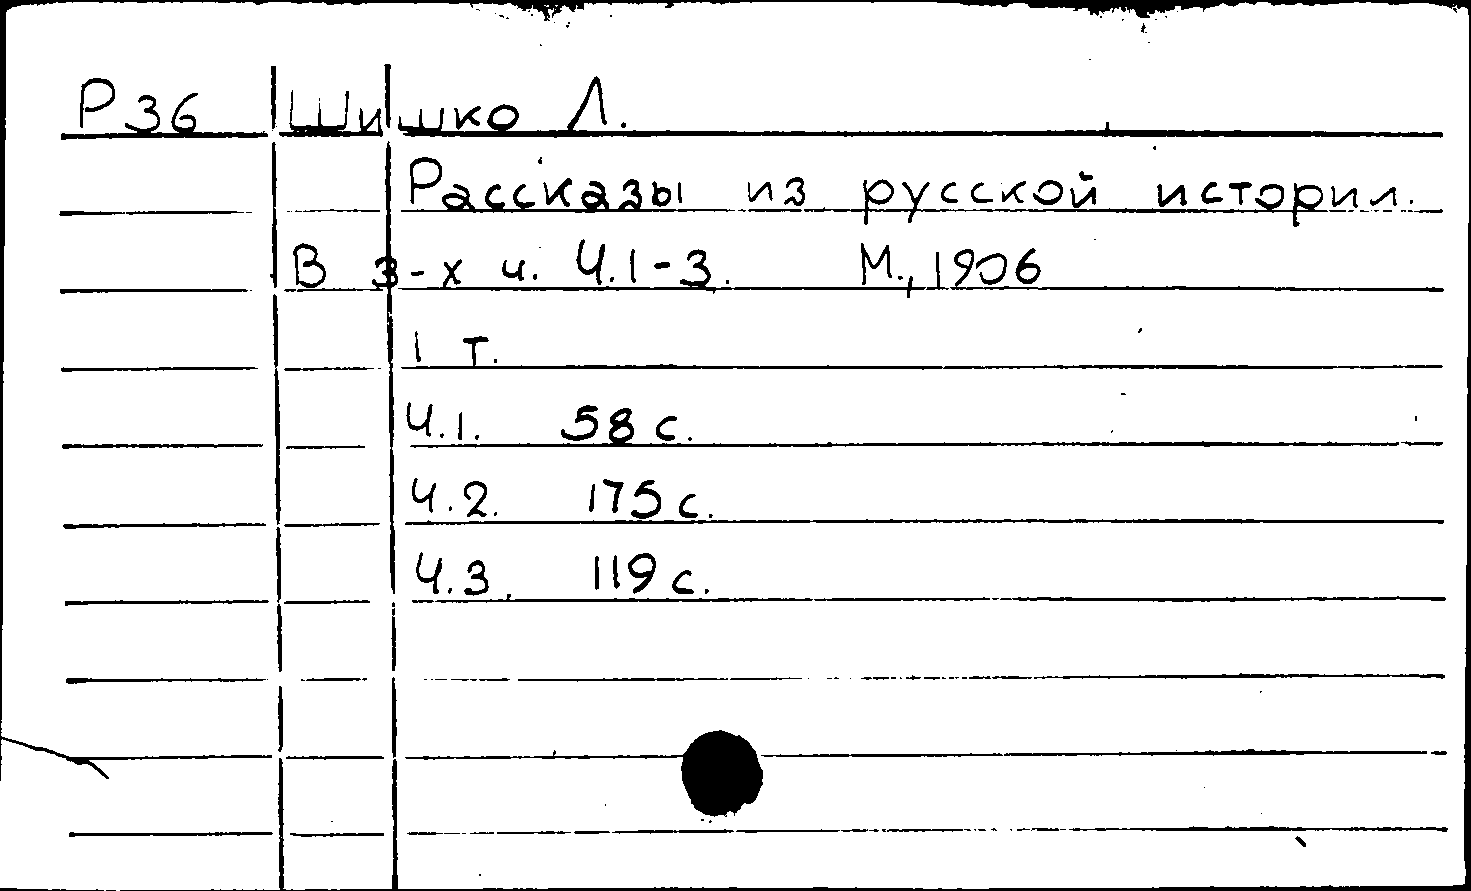 Р36 Шишко Л.
Рассказы из русской истории.
В 3-х ч. Ч.1-3. М., 1906
1 т.
Ч.1. 58 с.
Ч.2. 175 с.
Ч.3. 119 с.